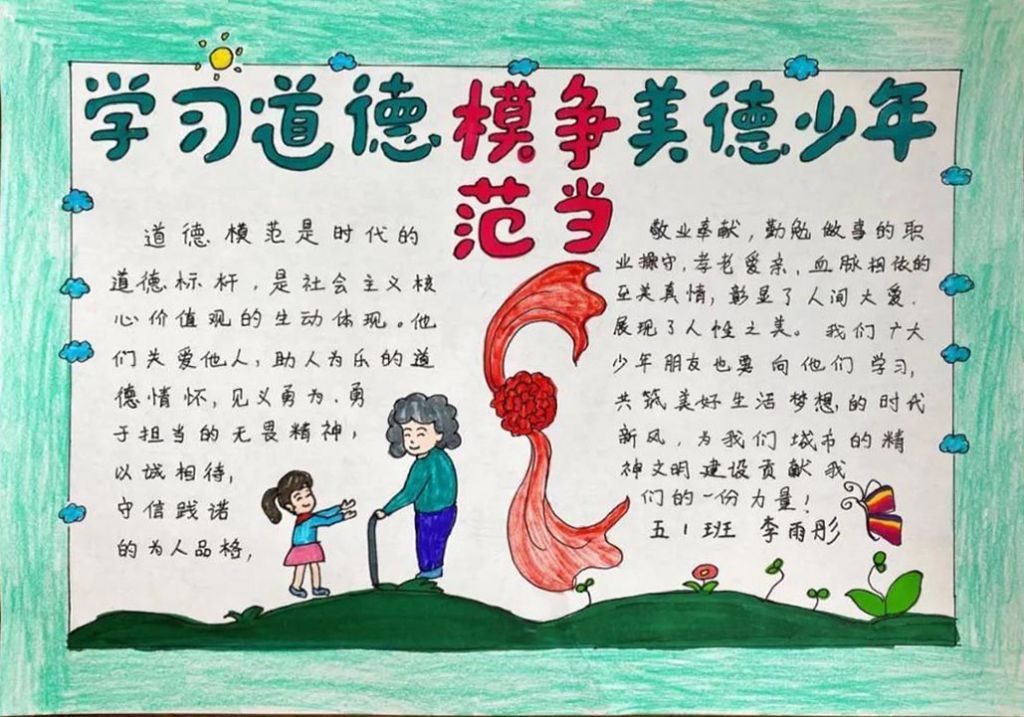 学习道德模范争当美德少年
道德模范是时代的
道德标杆，是社会主义核
心价值观的生动体现。他
们关爱他人，助人为乐的道
德情怀，见义勇为、勇
于担当的无畏精神，
以诚相待，
守信践诺
的为人品格，
敬业奉献，勤勉做事的职
业操守，孝老爱亲，血脉相依的
至美真情，彰显了人间大爱，
展现了人性之美。我们广大
少年朋友也要向他们学习，
共筑美好生活梦想，的时代
新风，为我们城市的精
神文明建设贡献我
们的一份力量！
五1班 李雨彤